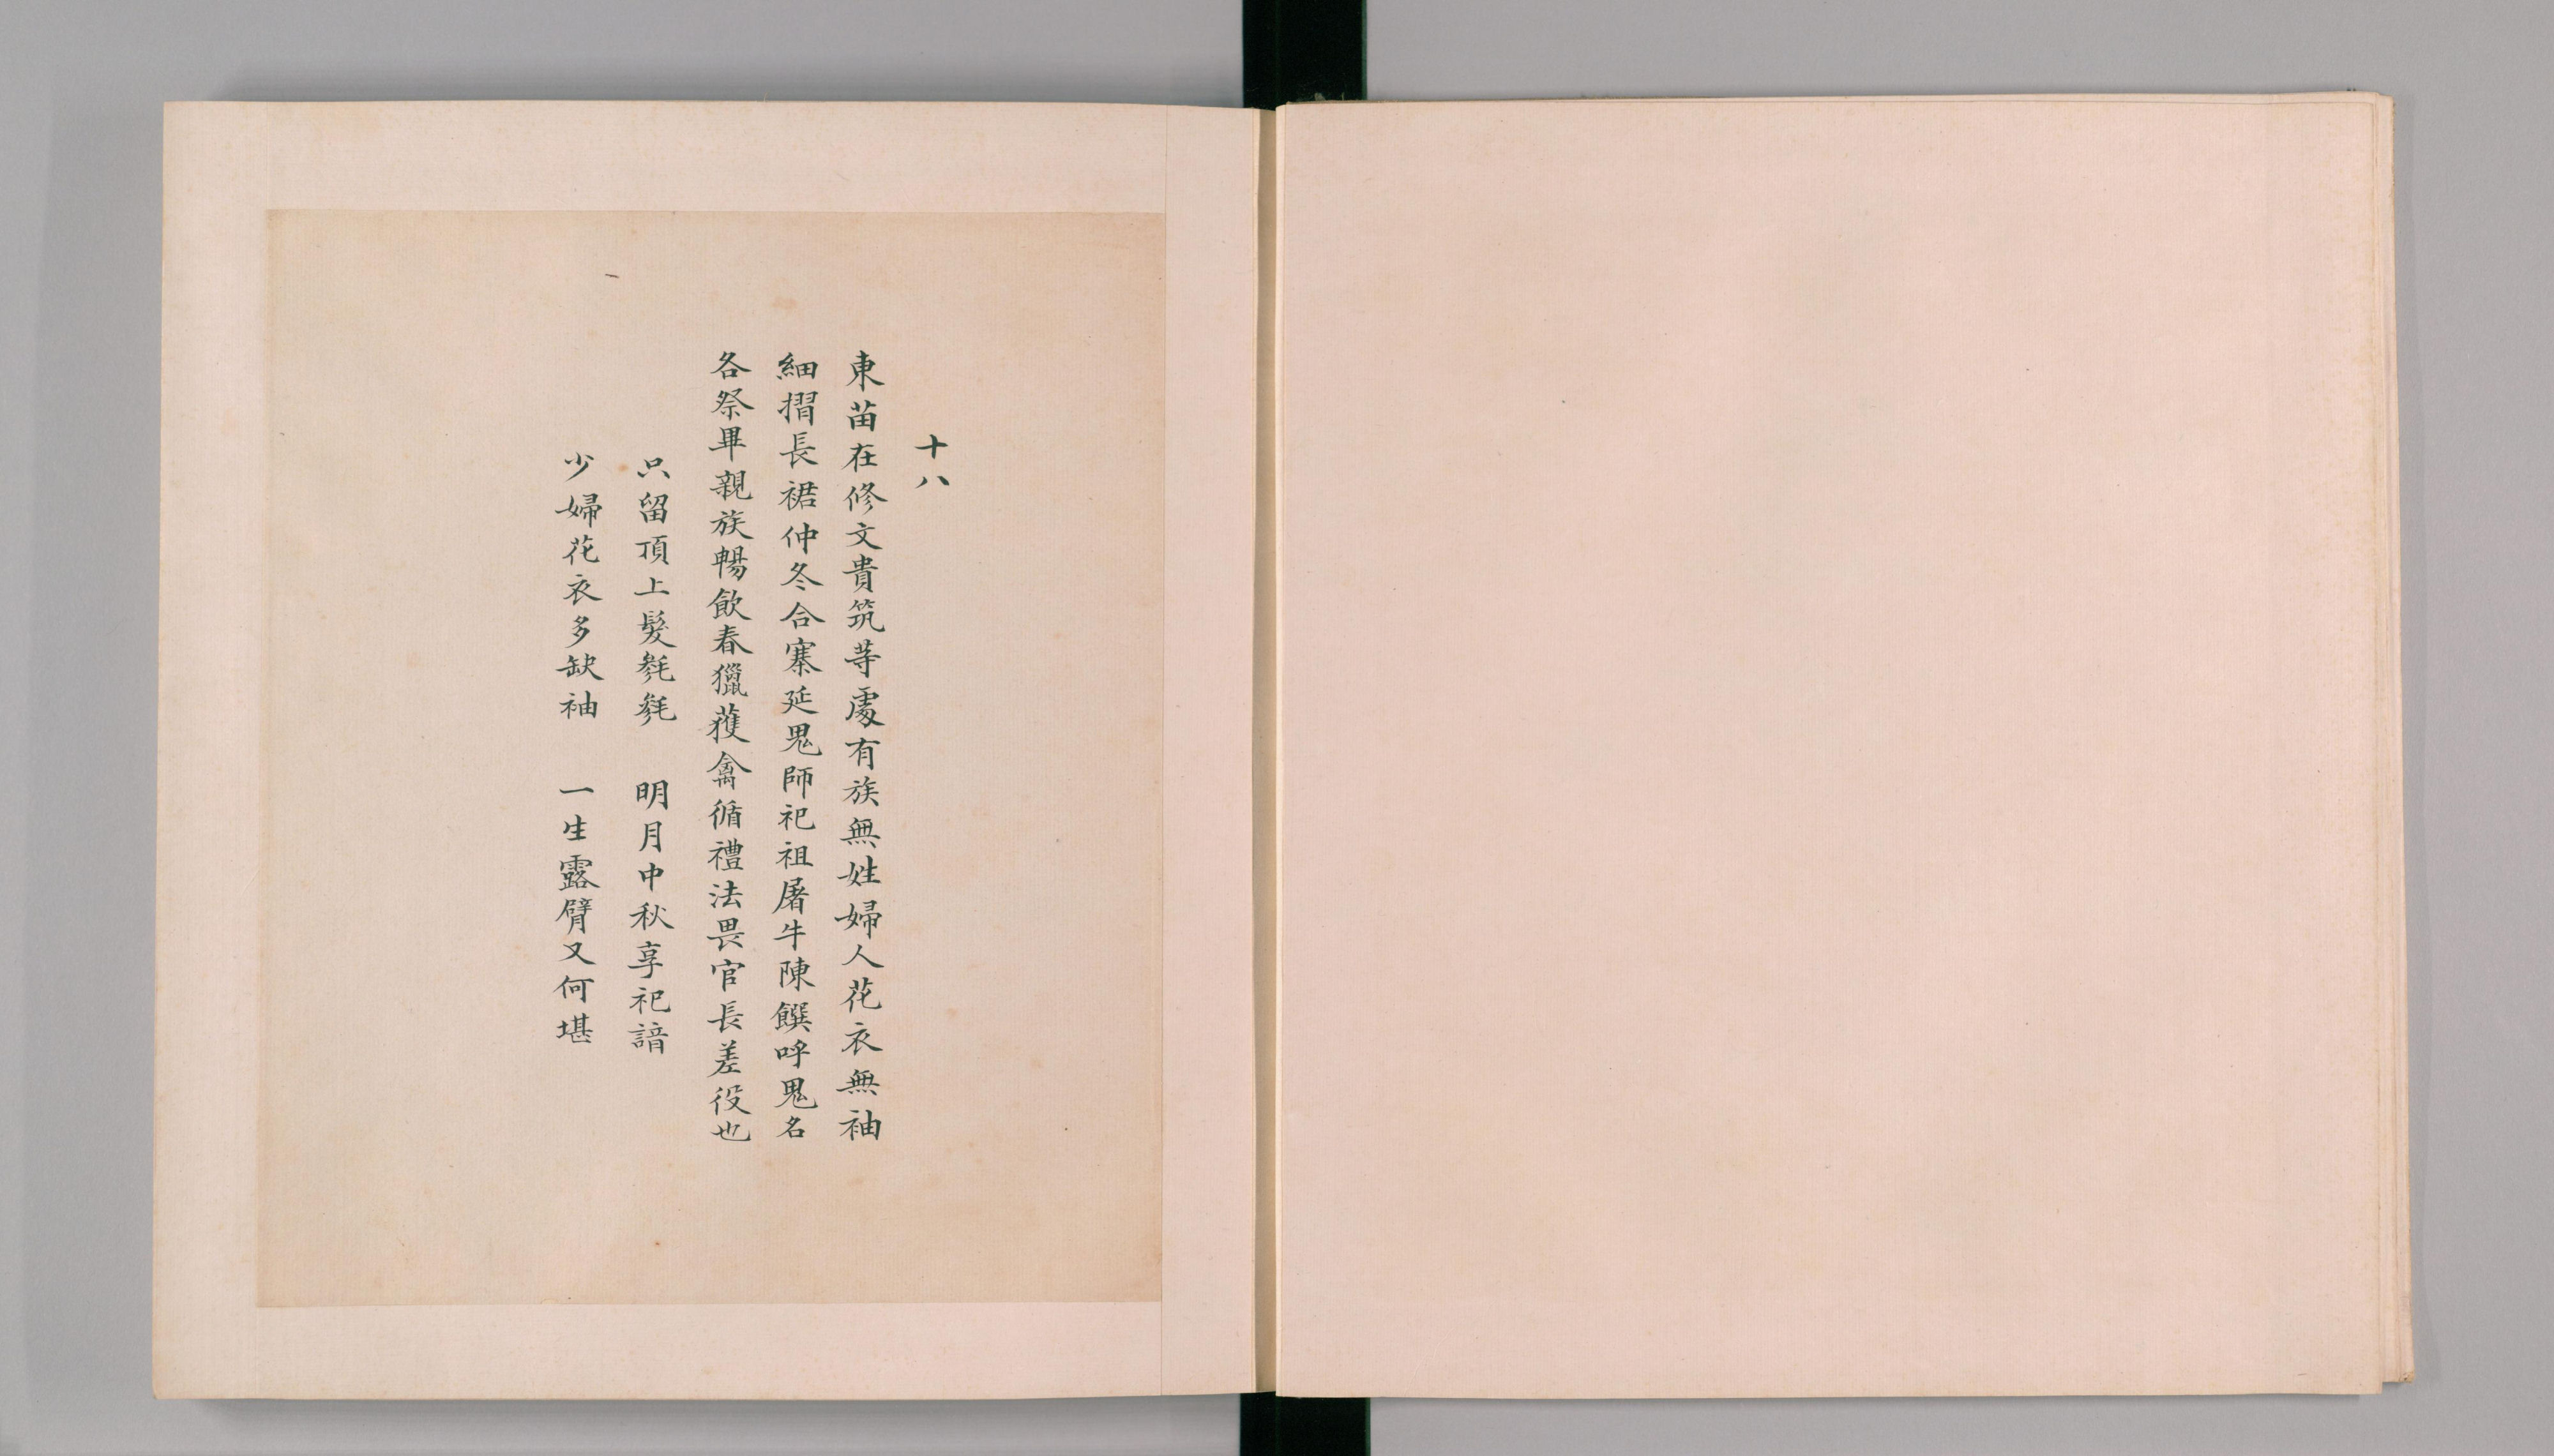 十八
東苗在修文貴筑等處有族無姓婦人花衣無袖
細摺長裙仲冬合寨延鬼師祀祖屠牛陳饌呼鬼名
各祭畢親族暢飲春獵獲禽循禮法畏官長差役也
只留頂上髮毿毿　明月中秋享祀諳
少婦花衣多缺袖　一生露臂又何堪